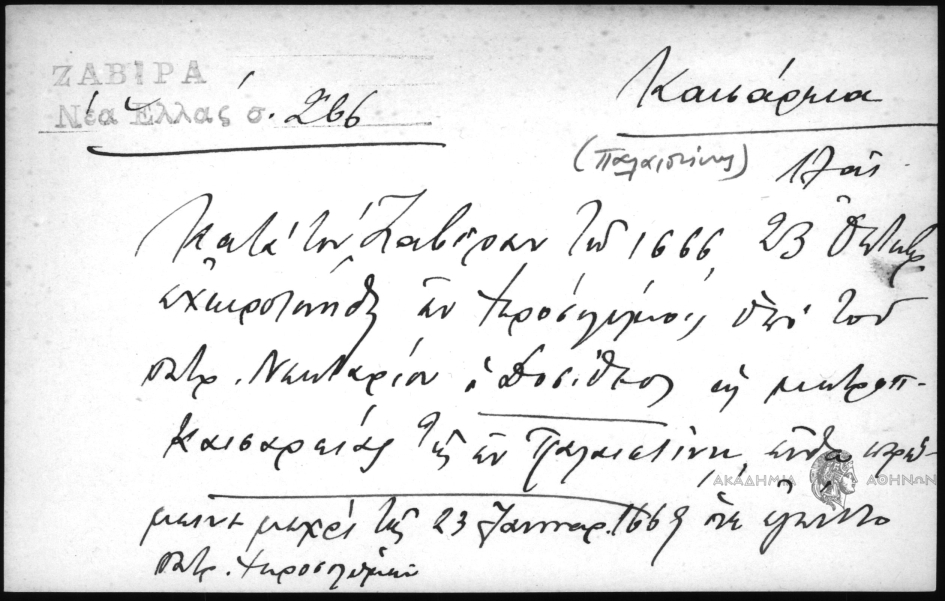 ΖΑΒΙΡΑ
Νέα Ἑλλάς σ. 266
Καισάρεια
(Παλαιστίνης)
Κατά τόν Ζαβίραν τῷ 1666 23 Ὀκτωβρ
ἐχειροτονήθη ἐν Ἱεροσολύμοις ὑπό τοῦ
πατρ. Νεκταρίου ὁ Δοσίθεος εἰς μητροπ-
Καισαρείας τῆς ἐν Παλαιστίνῃ, ἔνθα παρέ-
μεινε μεχρί τῆς 23 Ἰανουαρ. 1669 ὅτε ἐγένετο
πατρ. Ἱεροσολύμων
ΑΚΑΔΗΜΙΑ ΑΘΗΝΩΝ